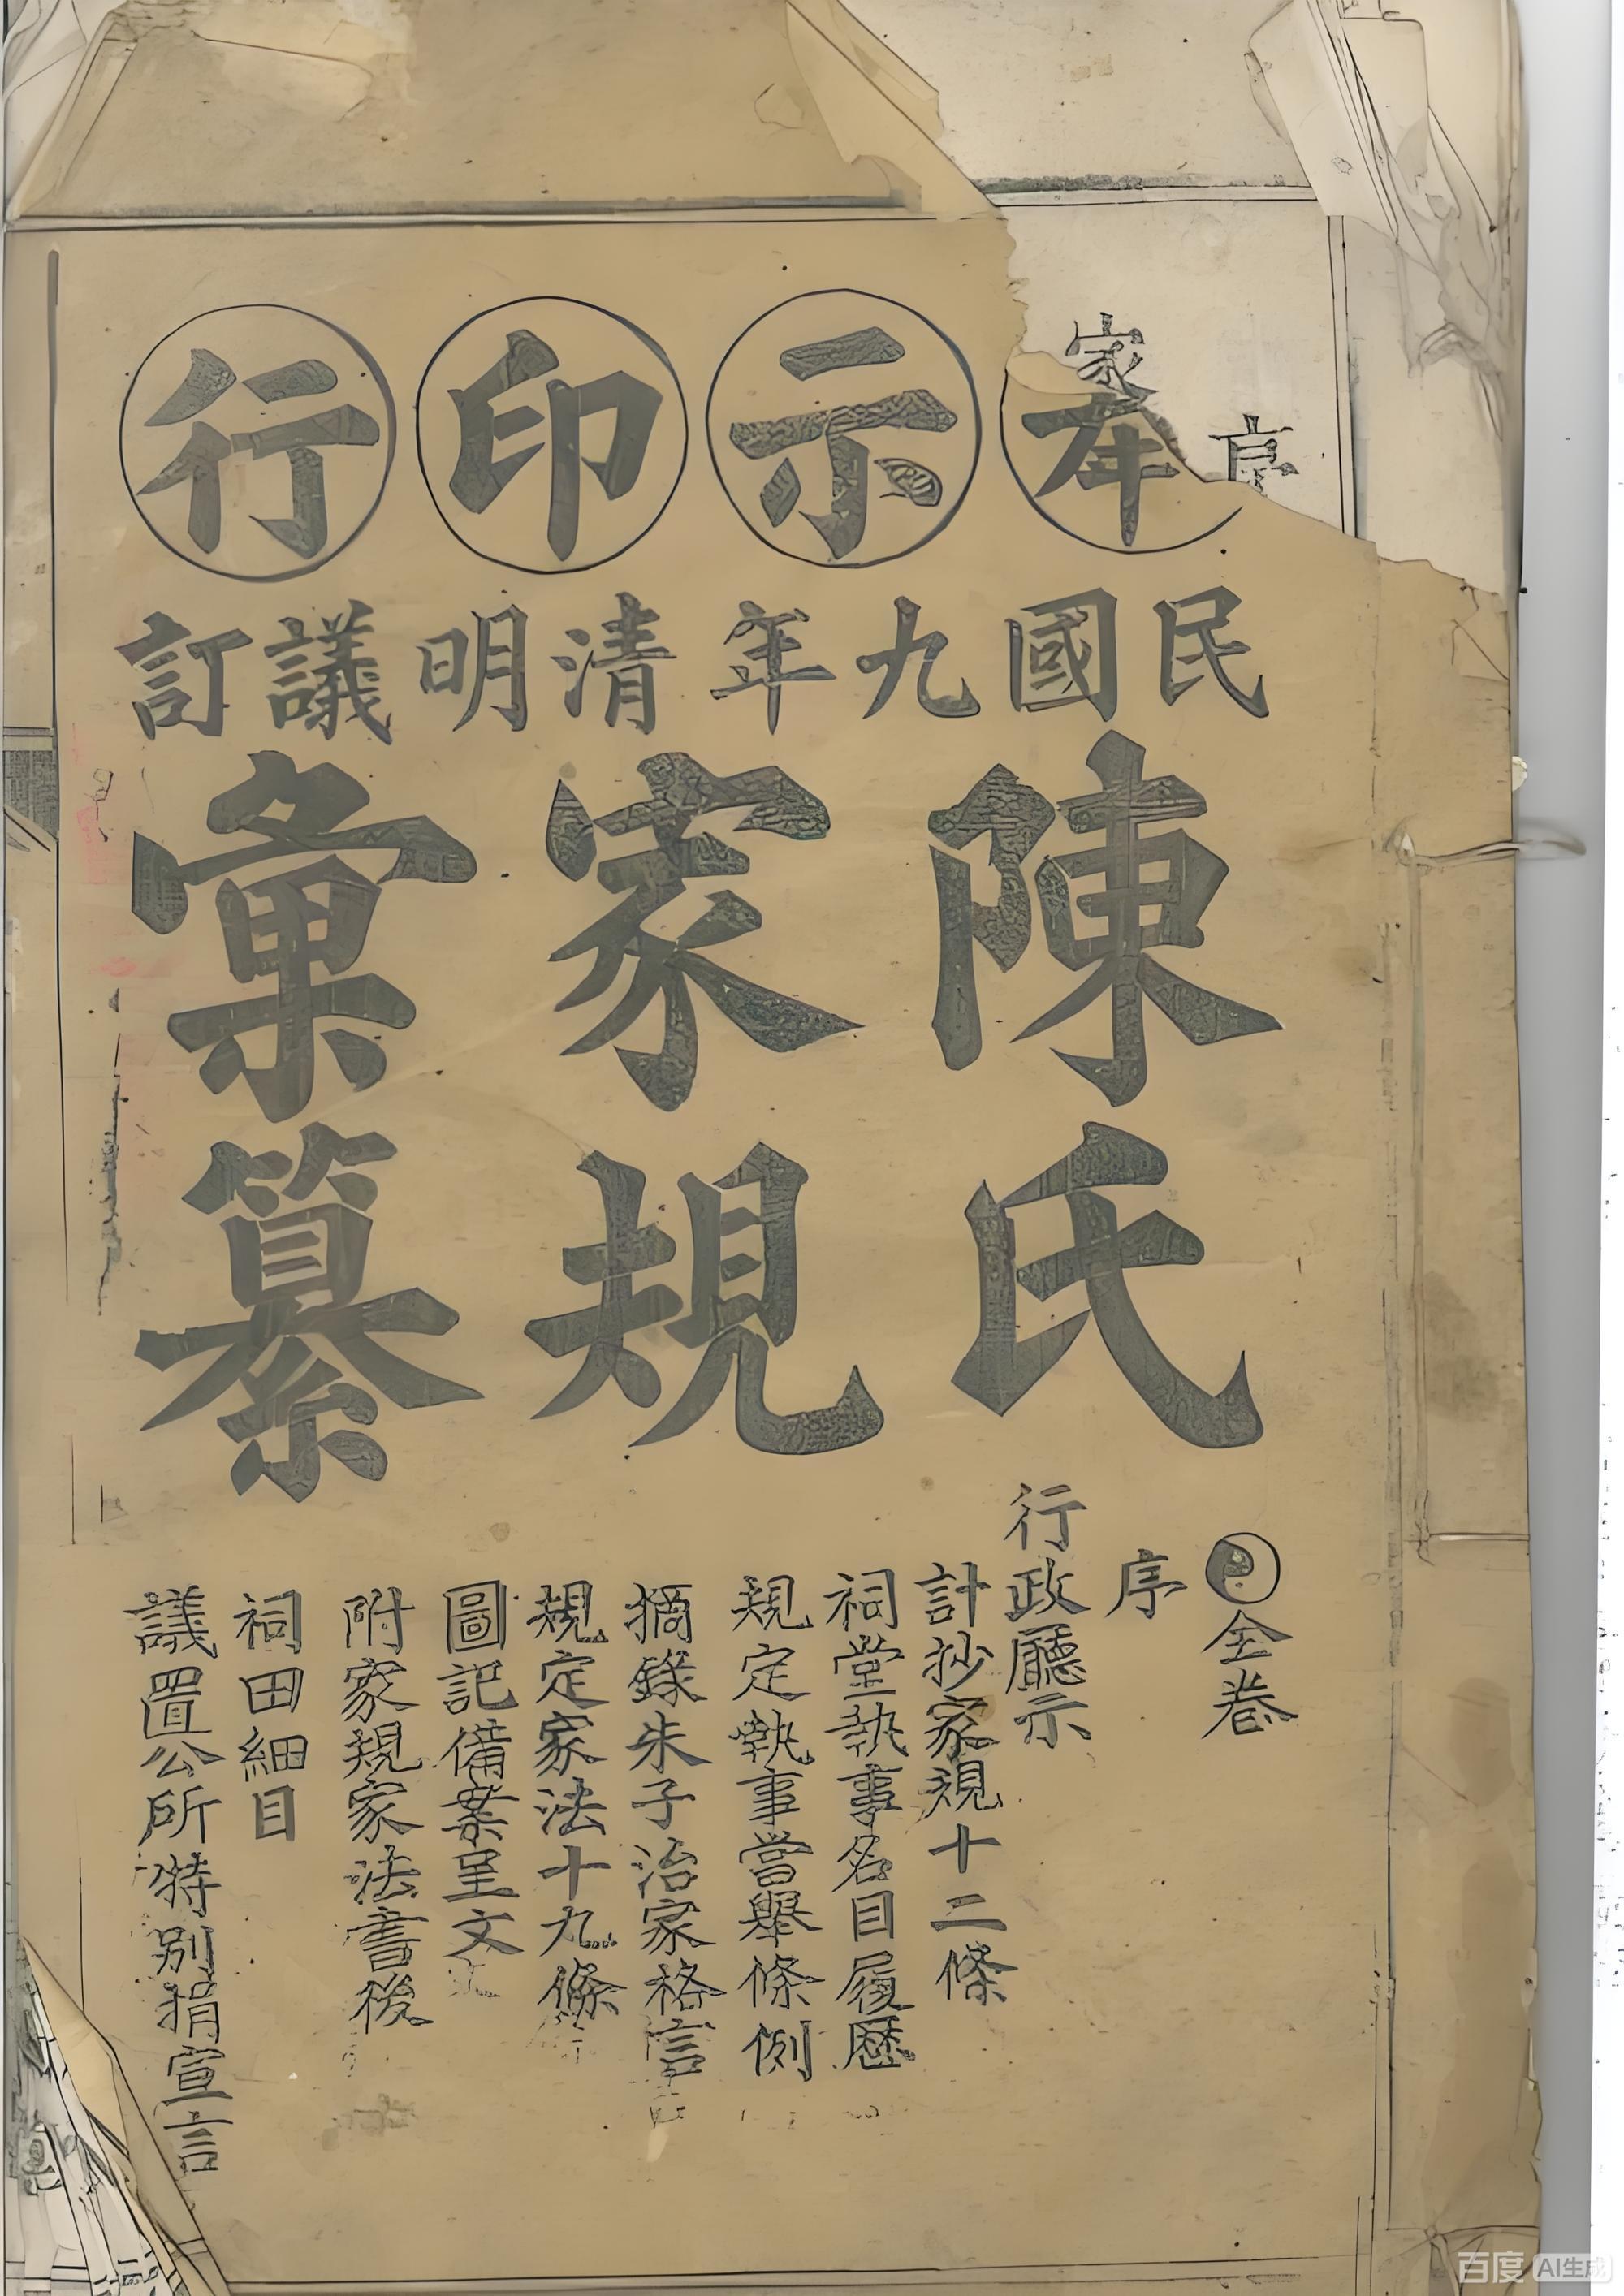 奉示印行
民國九年清明議訂
陳氏
家規
彙纂
全卷
序
行政廳示
計抄家規十二條
祠堂執事名目履歷
規定執事當舉條例
摘錄朱子治家格言
規定家法十九條
圖記備案呈文
附家規家法書後
祠田細目
議置公所特別捐宣言
家
百度 AI生成